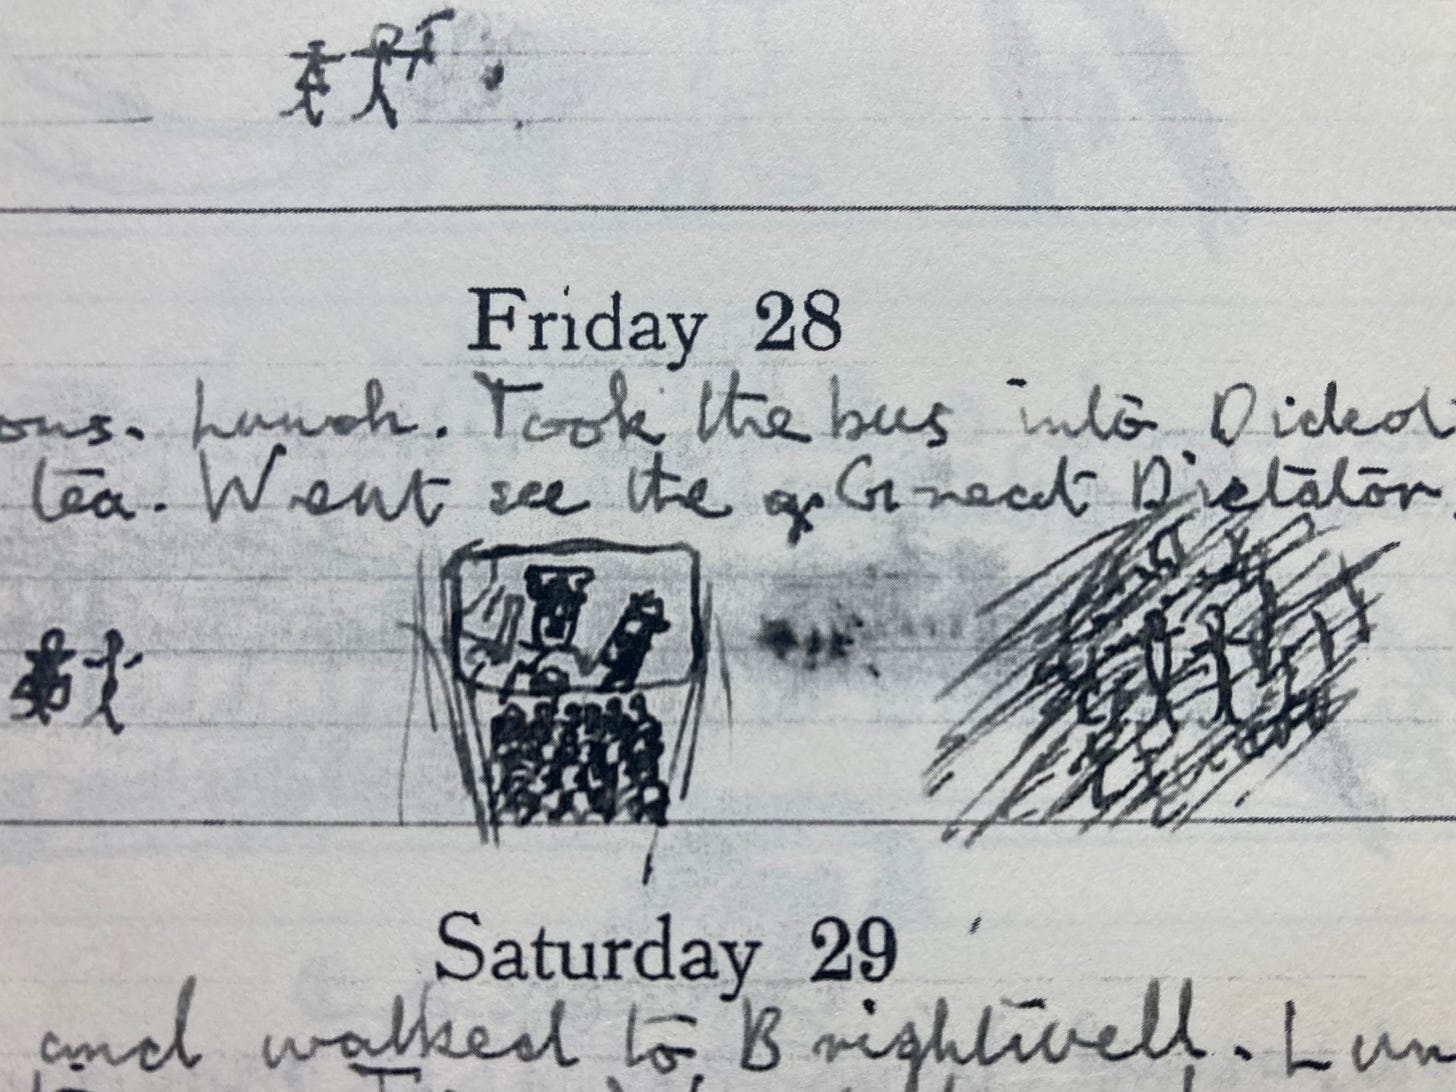 Friday 28
ous. Lunch. Took the bus into Didcot
tea. Went see the Great Dictator.
Saturday 29
and walked to Brightwell. Lun